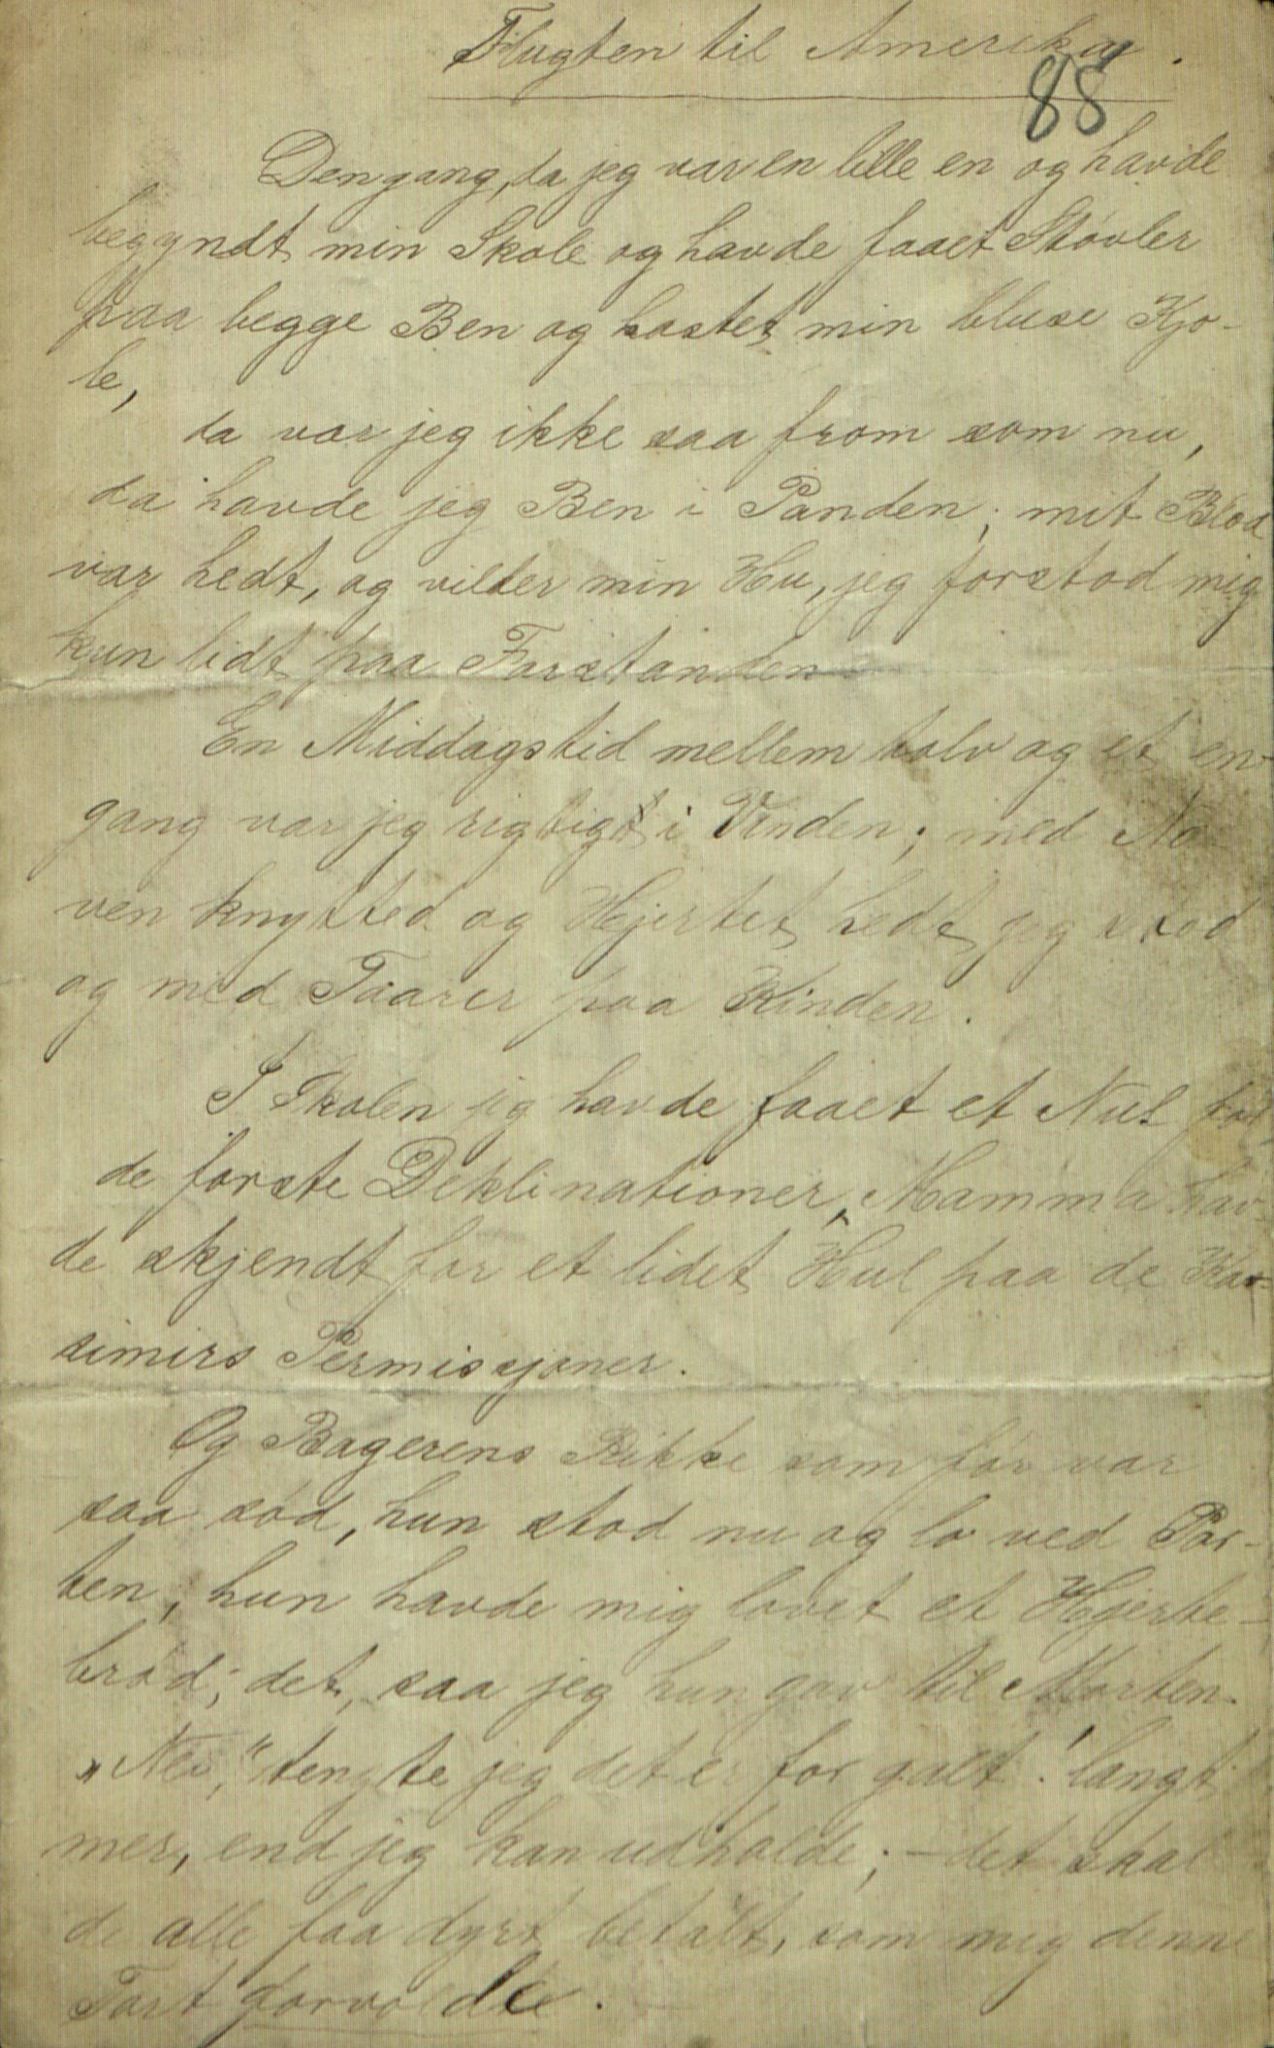 Flugten til Amerika.
88
Dengang, da jeg var en lille en og havde
begyndt min Skole og havde faaet Støvler
paa begge Ben og kastet min bluse Kjo-
le,
da var jeg ikke saa from som nu,
da havde jeg Ben i Panden; mit Blod
var hedt, og vilder min Hu, jeg forstod mig
kun lidt paa Forstanden
En Middagstid mellem tolv og et en-
gang var jeg rigtigt i Vinden; med Næ-
ven knytted og Hjertet hedt jeg stod
og med Taarer paa Kinden.
I Skolen jeg havde faaet et Nul for
de forste Deklinationer, Mamma hav-
de skjendt for et lidet Hul paa de Ka-
simirs Permissjoner.
Og Bagerens Rikke som før var
saa sød, hun stod nu og lo ved Por-
ten; hun havde mig lovet et Hjerte-
brød; det, saa jeg hun gav til Morten.
"Nei," tengte jeg det er for galt! langt
mer, end jeg kan udholde; - det skal
de alle faa dyrt betalt, som mig denne
Tort forvoldte.